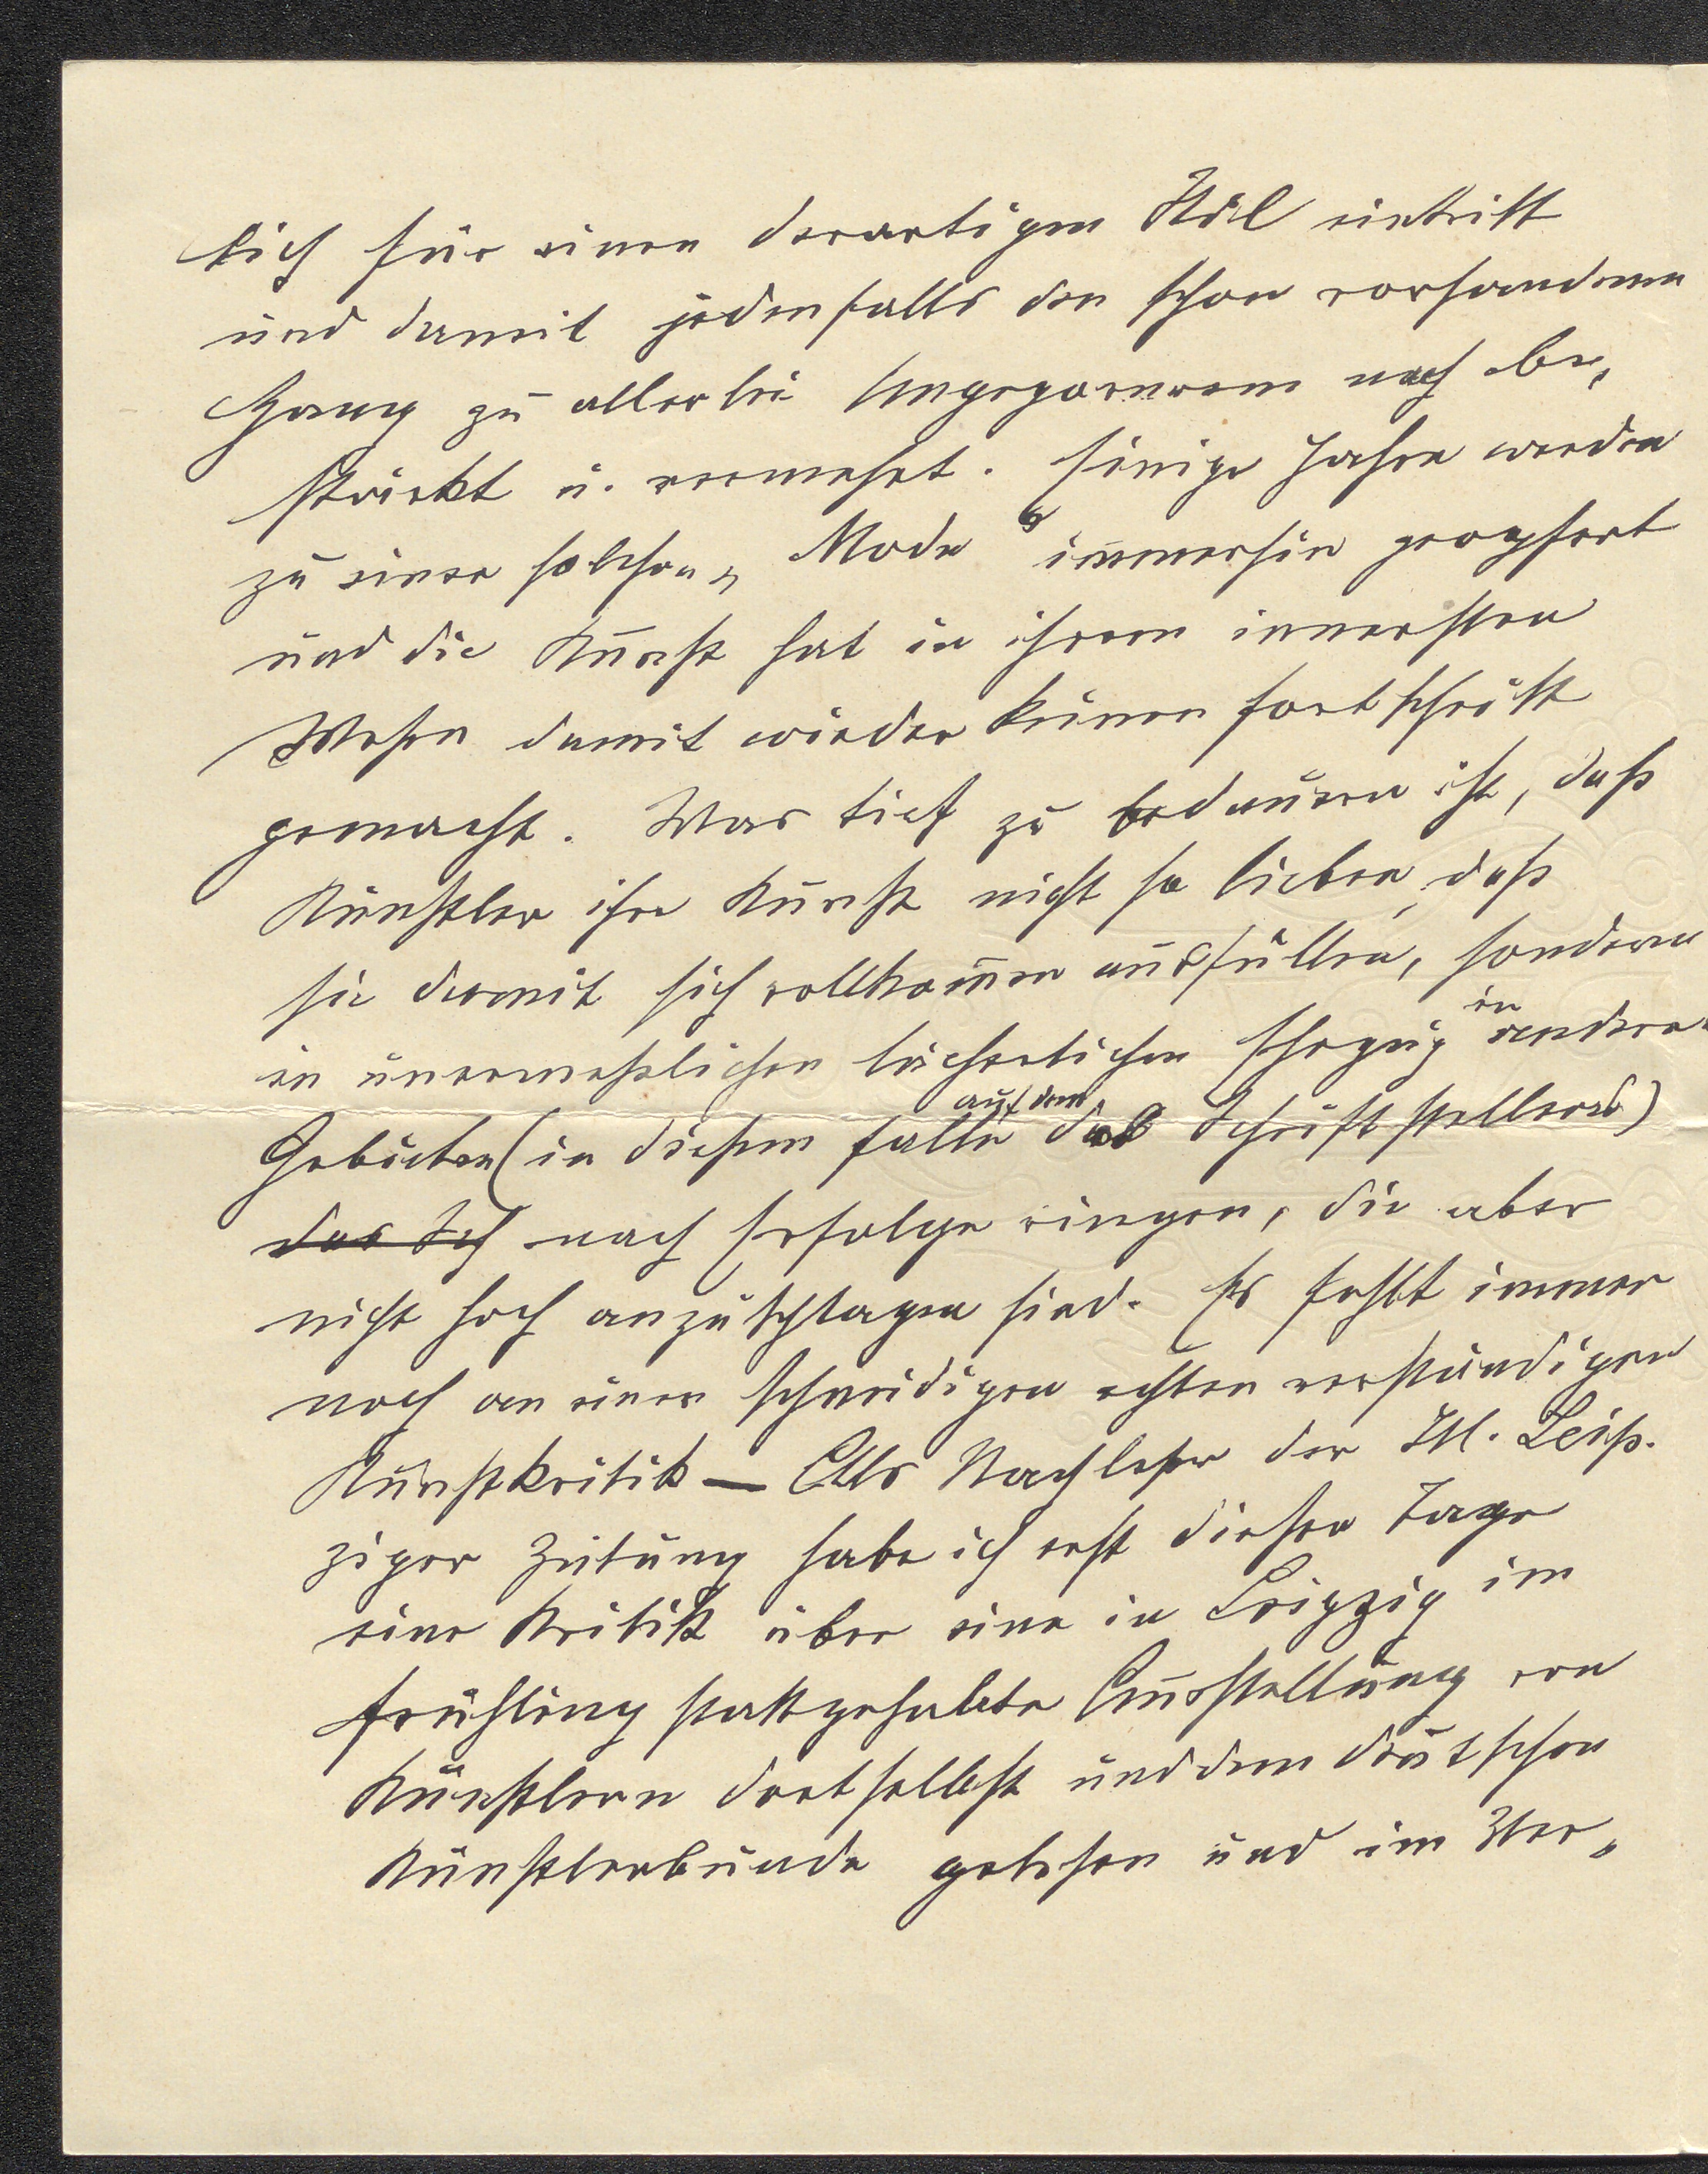 sich für einen derartigen Stil eintritt
und damit jedenfalls den schon vorhandenen
Hang zu allerlei Ungegorenem noch be„
stärkt u. vermehrt. Einige Jahre werden
zu einer solchen „Mode“ immerhin geopfert
und die Kunst hat in ihrem innersten
Wesen damit wieder keinen Fortschritt
gemacht. Was tief zu bedauern ist, daß
Künstler ihre Kunst nicht so lieben, daß
sie damit sich vollkommen ausfüllen, sondern
in unermeßlichen lächerlichen Ehrgeiz in anderen
Gebieten (in diesem Falle auf dem des Schriftstellers)
das Sch nach Erfolge ringen, die aber
nicht hoch anzuschlagen sind. Es fehlt immer
noch an einer schneidigen echten verständigen
Kunstkritik — Als Nachleser der Ill. Leip-
ziger Zeitung habe ich erst dieser Tage
eine Kritik über eine in Leipzig im
Frühling stattgehabte Ausstellung von
Künstlern dortselbst und dem deutschen
Künstlerbunde gelesen und im Ver„